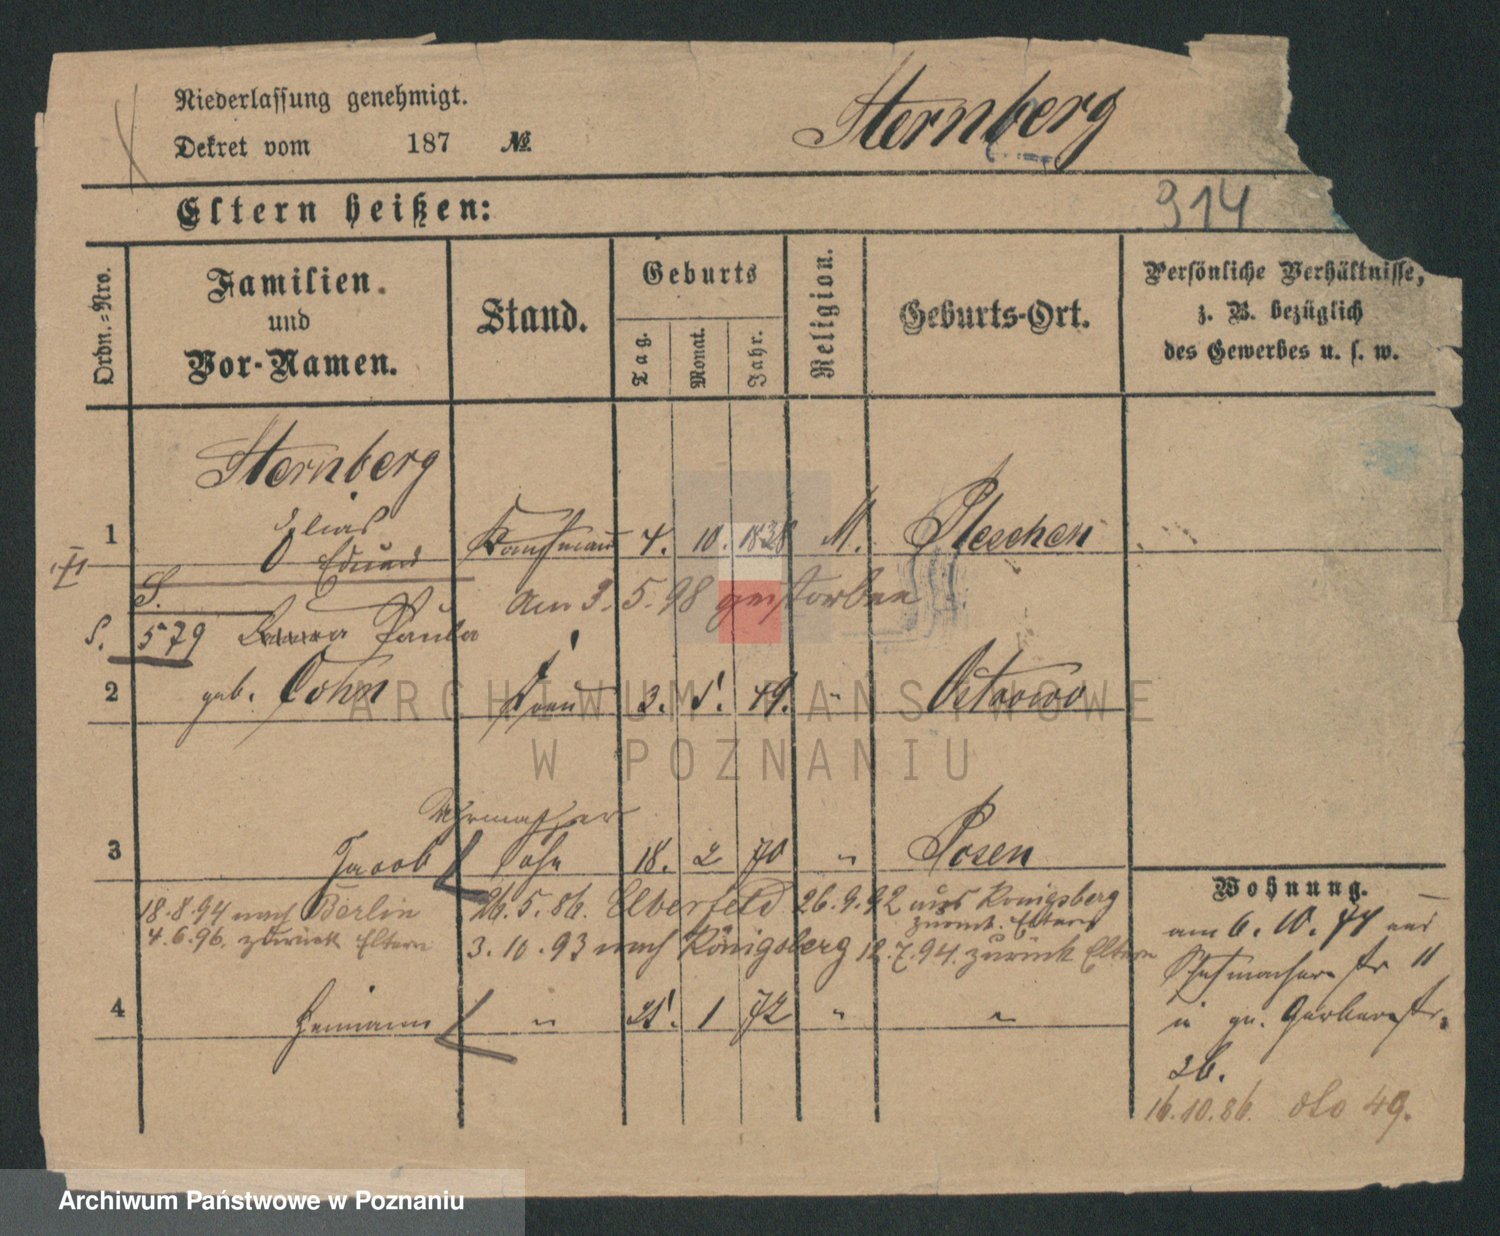 Niederlassung genehmigt.
Dekret vom 187 №
Sternberg
Eltern heißen:
914
Ordn.=Nro.
Familien.
und
Vor-Namen.
Stand.
Geburts
Tag.
Monat.
Jahr.
Religion.
Geburts-Ort.
Persönliche Verhältnisse,
z. B. bezüglich
des Gewerbes u. s. w.
Sternberg
1 Elias Kaufmann 4. 10. 1828 M. Pleschen
Eduard
S.
am 3. 5. 98 gestorben
S. 579 Paula
2 geb. Cohn Frau 3. 49. " Ostrowo
Uhrmacher
3 Jacob Sohn 18. 2 70 " Posen
18.8.94 nach Berlin 26.5.86. Elberfeld 26.9.92 aus Königsberg
zurück. Eltern
4.6.96. zurück Eltern 3.10.93 nach Königsberg 12.7.94. zurück Eltern
4 Heimann " 25. 1 72 " "
Wohnung.
am 6. 10. 77
Schuhmacherstr 11
Gerberstr.
26.
16.10.86. dto 49.
ARCHIWUM PAŃSTWOWE
W POZNANIU
Archiwum Państwowe w Poznaniu